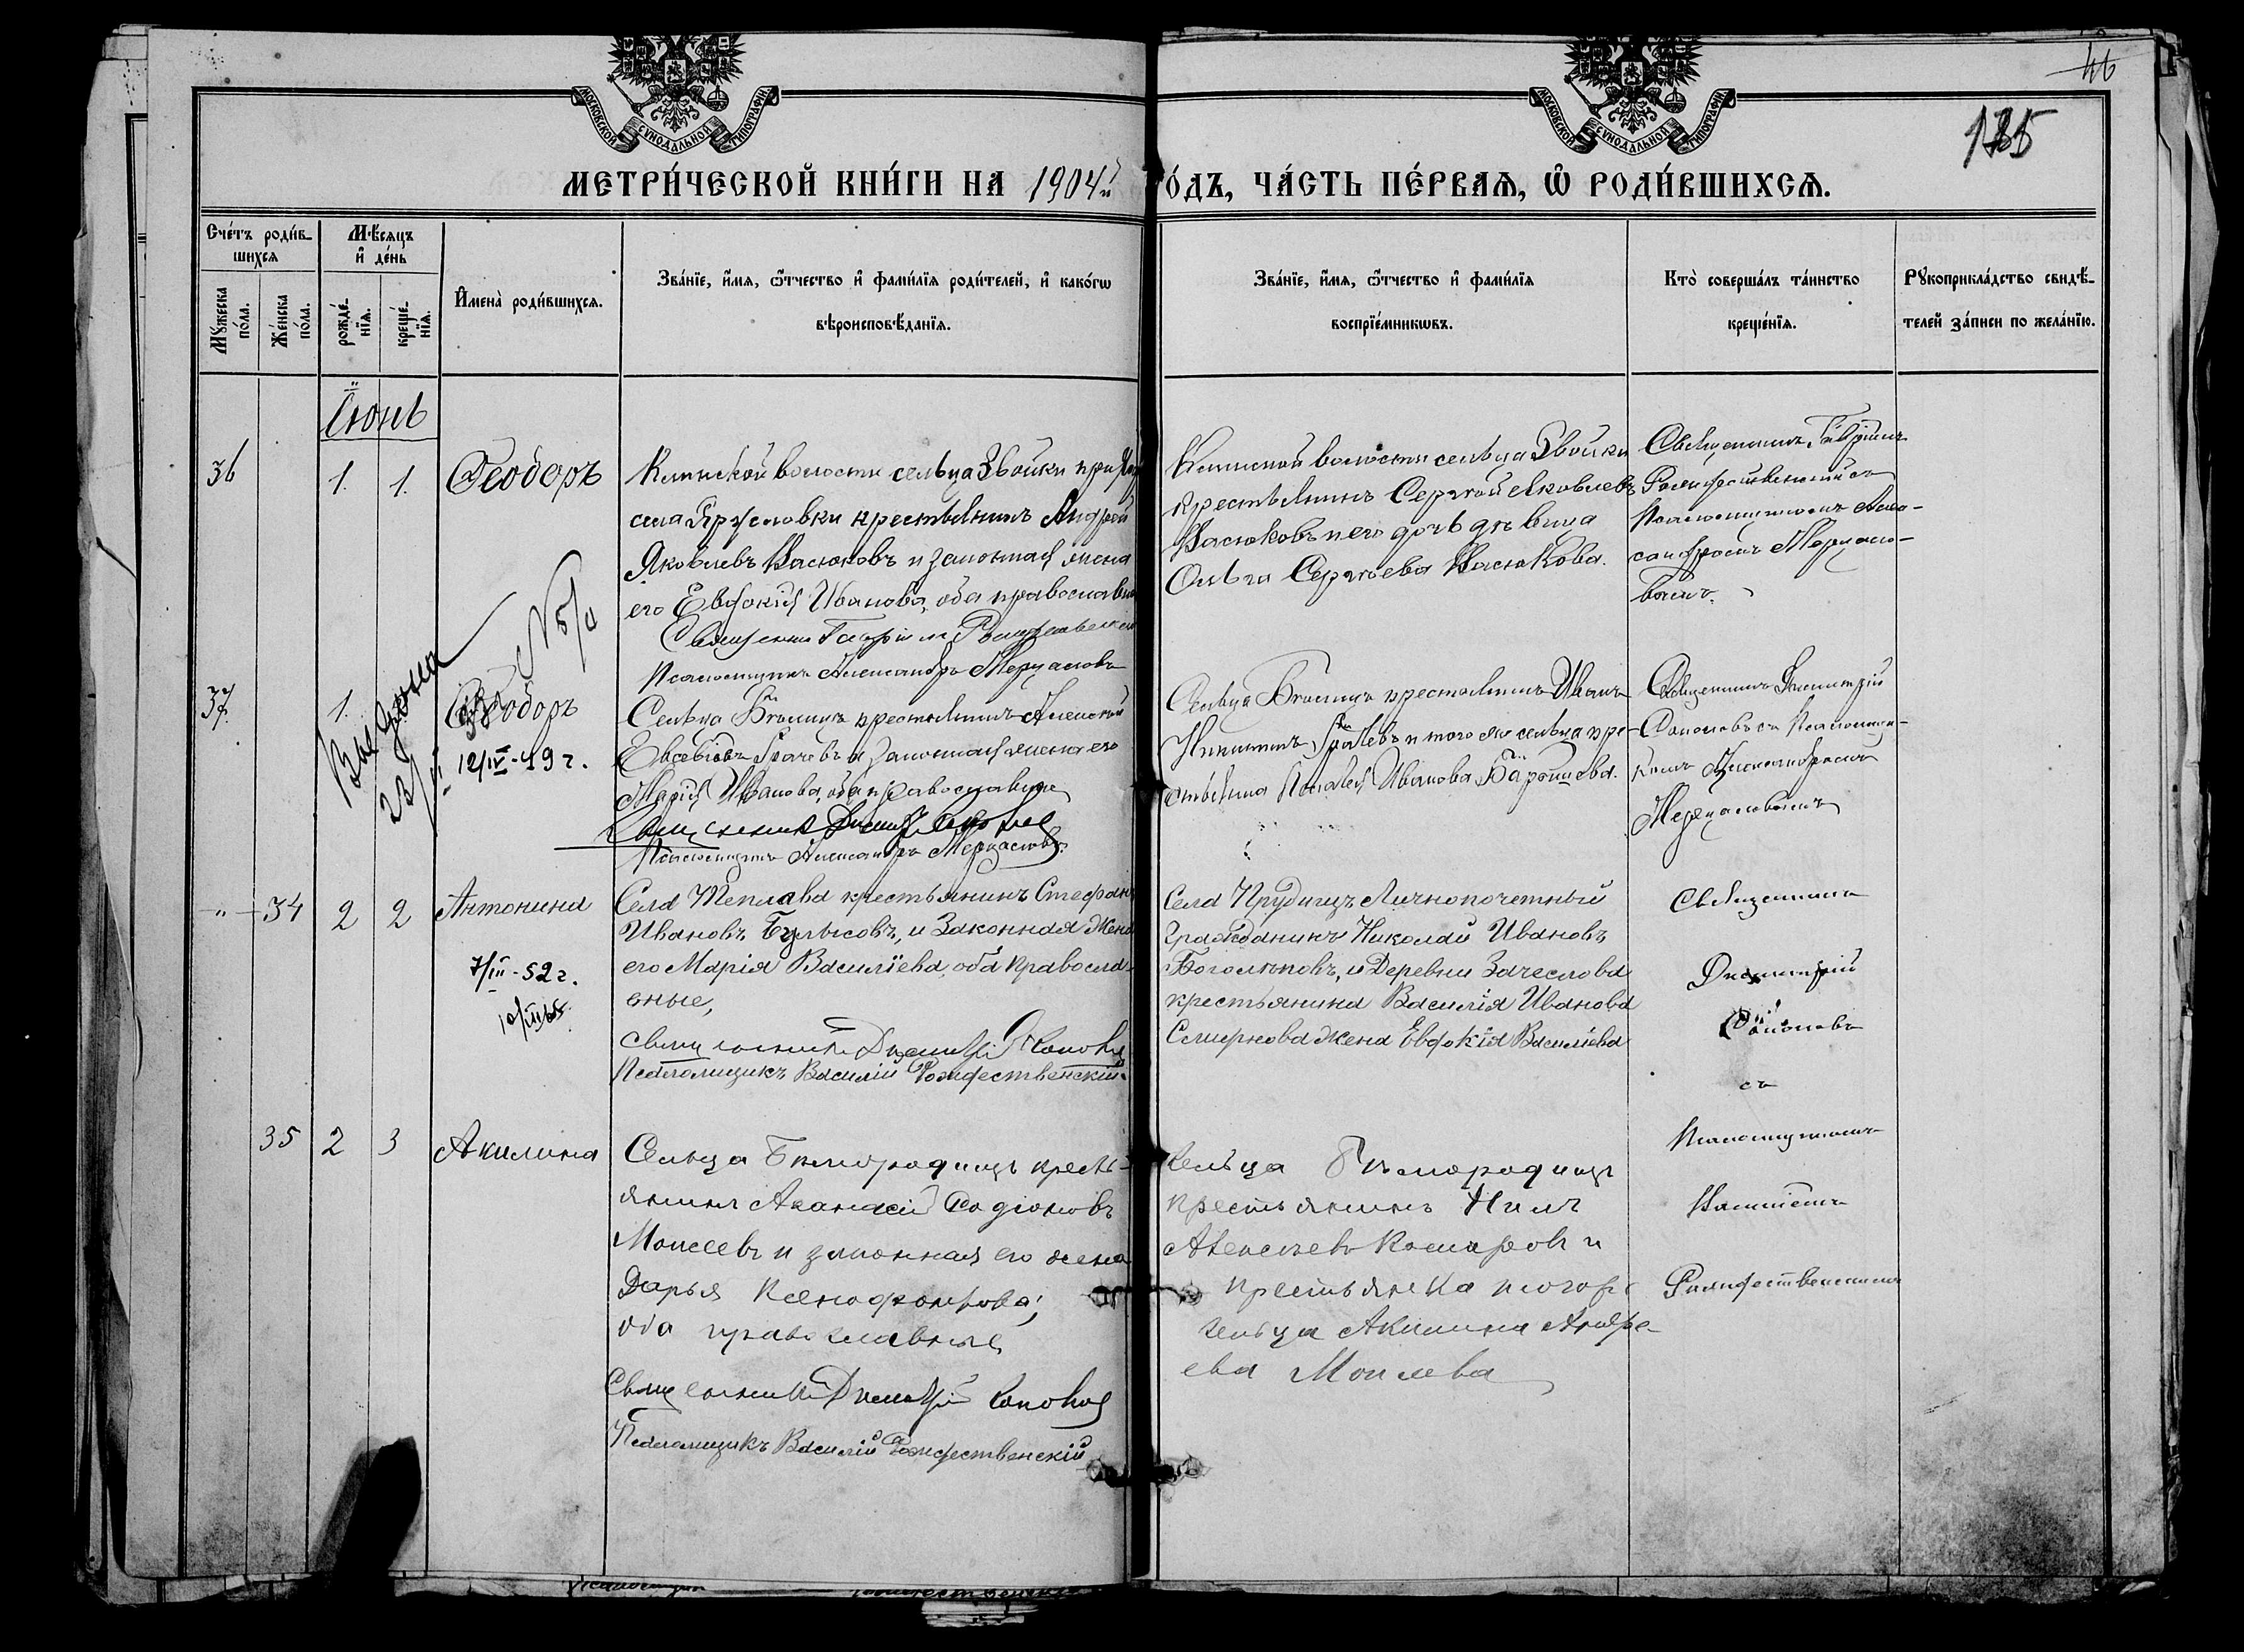 46
135
МОСКОВСКОЙ СУНОДАЛЬНОЙ ТИПОГРАФИИ
МОСКОВСКОЙ СУНОДАЛЬНОЙ ТИПОГРАФИИ
МЕТРИ́ЧЕСКОЙ КНИ́ГИ НА 1904й ГО́ДЪ, ЧА́СТЬ ПЕ́РВАѦ, Ѡ РОДИ́ВШИХСѦ.
Сче́тъ роди́в-
шихсѧ
Мꙋжеска по́ла.
Же́нска по́ла.
Мѣ́сѧцъ и де́нь
рожде́-
нїѧ.
креще́-
нїѧ.
Имена̀ роди́вшихсѧ.
Зва́нїе, и́мѧ, ѻ́тчество и фами́лїѧ роди́телей, и како́гѡ
вѣроисповѣ́данїѧ.
Зва́нїе, и́мѧ, ѻ́тчество и фами́лїѧ
воспрїе́мникѡвъ.
Кто̀ соверша́лъ та́инство
креще́нїѧ.
Рꙋкоприкла́дство свидѣ́-
телей за́писи по жела́нїю.
Іюнь
36
1.
1.
Ѳеодоръ
Клинской волости сельца Звойки при
села Ярусловки крестьянинъ Андрей
Яковлевъ Васюковъ и законная жена
его Евдокія Иванова, оба православ
Священникъ Гавріилъ Рождественскій
Псаломщикъ Александръ Мерцаловъ
Клинской волости сельца Звойки
крестьянинъ Сергѣй Яковлевъ
Васюковъ и его дочь дѣвица
Ольга Сергѣева Васюкова.
Священникъ Гавріилъ
Рождественскій съ
Псаломщикомъ Алек-
сандромъ Мерцало-
вымъ.
37.
1.
Выдана
23/VI
Ѳеодоръ
12/IV-49 г.
Сельца крестьянинъ Алексѣй
Евсевіевъ Грачевъ и законная жена его
Марія Иванова, оба православные
Священникъ Димитрій Соколовъ
Псаломщикъ Александръ Мерцаловъ.
Сельца крестьянинъ Иванъ
Никитинъ и того же сельца кре-
стьянка Иванова
Священникъ Димитрій
съ Псаломщи-
комъ Александромъ
Мерцаловымъ
"
34
2
2
Антонина
7/III-52 г.
Села Теплава крестьянинъ Стефанъ
Ивановъ и Законная Жена
его Марія Василіева, оба Правосла-
вные,
Священникъ Димитрій
Псаломщикъ Василій Рождественскій.
Села Прудищъ Личнопочетный
гражданинъ Николай Ивановъ
Боголюповъ, и Деревни Зачеслова
крестьянина Василія Иванова
Смирнова Жена Евдокія Василіева
Священникъ
Димитрій
съ
Псаломщикомъ
Василіемъ
Рождественскимъ
35
2
3
Акилина
Сельца Бѣлородищъ кресть-
янинъ Аѳанасій Родіоновъ
Моисеевъ и законная его жена
Дарья Ксенофонтова;
оба православные
Священникъ Димитрій
Псаломщикъ Василій Рождественскій
Сельца Бѣлородищъ
крестьянинъ Нилъ
Алексѣевъ Комаровъ и
крестьянка тогоже
сельца Акилина Андре-
ева Моисева